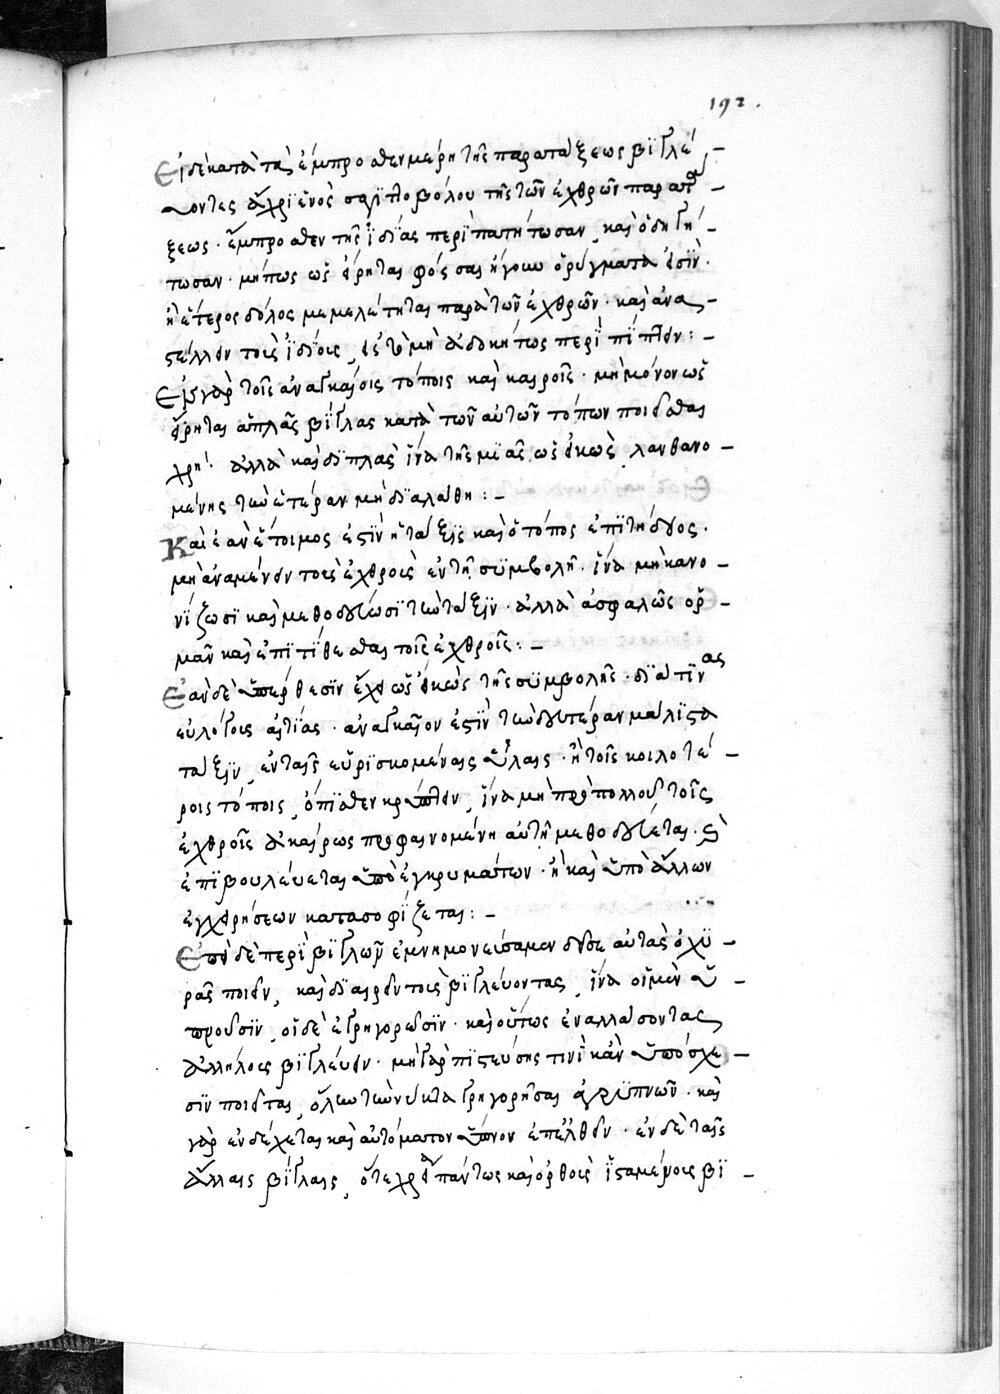 192.
Εἰ δὲ κατὰ τὰ ἔμπροσθεν μέρη τῆς παρατάξεως βϊγλέ-
οντες ἄχρϊ ἑνὸς σαγϊττοβόλου τῆς τῶν ἐχθρῶν παρατά-
ξεως · ἔμπροσθεν τῆς ἰδίας περϊπατήτωσαν, καὶ ὁδηγή-
τωσαν · μήπως ὡς εἴρηται φόσσας ἤγουν ὀρύγματα εἰσὶν ·
ἢ ἕτερος δόλος μεμελέτηται παρὰ τῶν ἐχθρῶν · καὶ ἀνα-
στέλλειν τοὺς ἰδίους, εἰς τὸ μὴ ἀδοκήτως περϊπίπτειν : -
Ἐν γὰρ τοῖς ἀναγκαίοις τόποις καὶ καιροῖς · μὴ μόνον ὡς
εἴρηται ἁπλᾶς βίγλας κατὰ τῶν αὐτῶν τόπων ποιεῖσθαι
χρή · ἀλλὰ καὶ διπλᾶς ἵνα τῆς μιᾶς ὡς εἰκὼς λανθανο-
μένης τὴν ἑτέραν μὴ διαλάθη : -
Καὶ ἐὰν ἕτοιμος ἐστὶν ἡ τάξις καὶ ὁ τόπος ἐπιτήδειος ·
μὴ ἀναμένειν τοὺς ἐχθροὺς ἐν τῇ συμβολῇ · ἵνα μὴ κανο-
νίζωσι καὶ μεθοδεύωσι τὴν τάξιν · ἀλλὰ ἀσφαλῶς ὁρ-
μᾶν καὶ ἐπιτίθεσθαι τοῖς ἐχθροῖς : -
Ἐὰν δὲ ὑπέρθεσιν ἔχει ὡς εἰκὼς τῆς συμβολῆς · διά τινας
εὐλόγους αἰτίας · ἀναγκαῖον ἐστὶν τὴν δευτέραν μάλιστα
τάξιν, ἐν ταῖς εὑρισκομέναις ὕλαις · ἢ τοῖς κοιλοτέ-
ροις τόποις, ὄπισθεν κρύπτειν, ἵνα μὴ πρὸ πολλοῦ τοῖς
ἐχθροῖς ἀκαίρως προφαινομένη αὐτῇ μεθοδεύεται · καὶ
ἐπιβουλεύεται ὑπὸ ἐγκρυμάτων · ἢ καὶ ὑπὸ ἄλλων
ἐγχειρήσεων κατασοφίζεται : -
Ἐπεὶ δὲ περὶ βιγλῶν ἐμνημονεύσαμεν δεῖ σε αὐτὰς ὀχυ-
ρᾶς ποιεῖν, καὶ διαιρεῖν τοὺς βιγλεύοντας, ἵνα οἱ μὲν ὑ-
πνοῦσιν, οἱ δὲ ἐγρηγοροῦσιν · καὶ οὕτως ἐναλλάσοντας
ἀλλήλους βιγλεύειν · μὴ γὰρ πιστεύσης τινὶ κἂν ὑπόσχε-
σιν ποιεῖται, ὅλην τὴν νύκτα γρηγορῆσαι ἀγρυπνῶν · καὶ
γὰρ ἐνδέχεται καὶ αὐτόματον ὕπνον ἐπελθεῖν · ἐν δὲ ταῖς
ἄλλαις βίγλαις, ὅτε χρεία πάντως καὶ ὀρθοὺς ἱσταμένους βι-